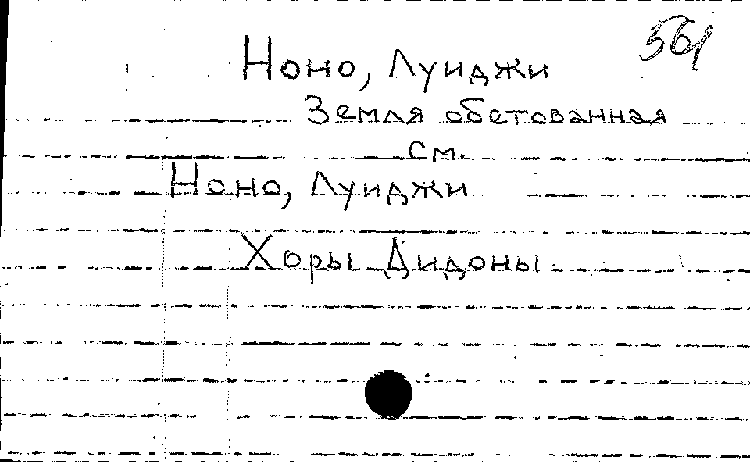 561
Ноно, Луиджи
Земля обетованная
см.
Ноно, Луиджи
Хоры Дидоны